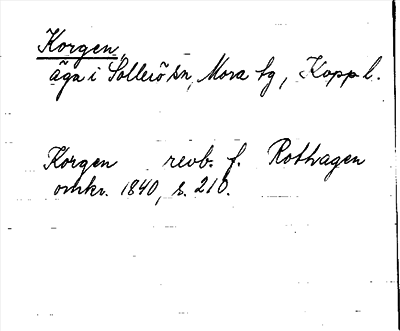 Korgen,
äga i Sollerö sn, Mora tg, Kopp l.
Korgen revb. f. Rothagen
omkr. 1840, s. 210.